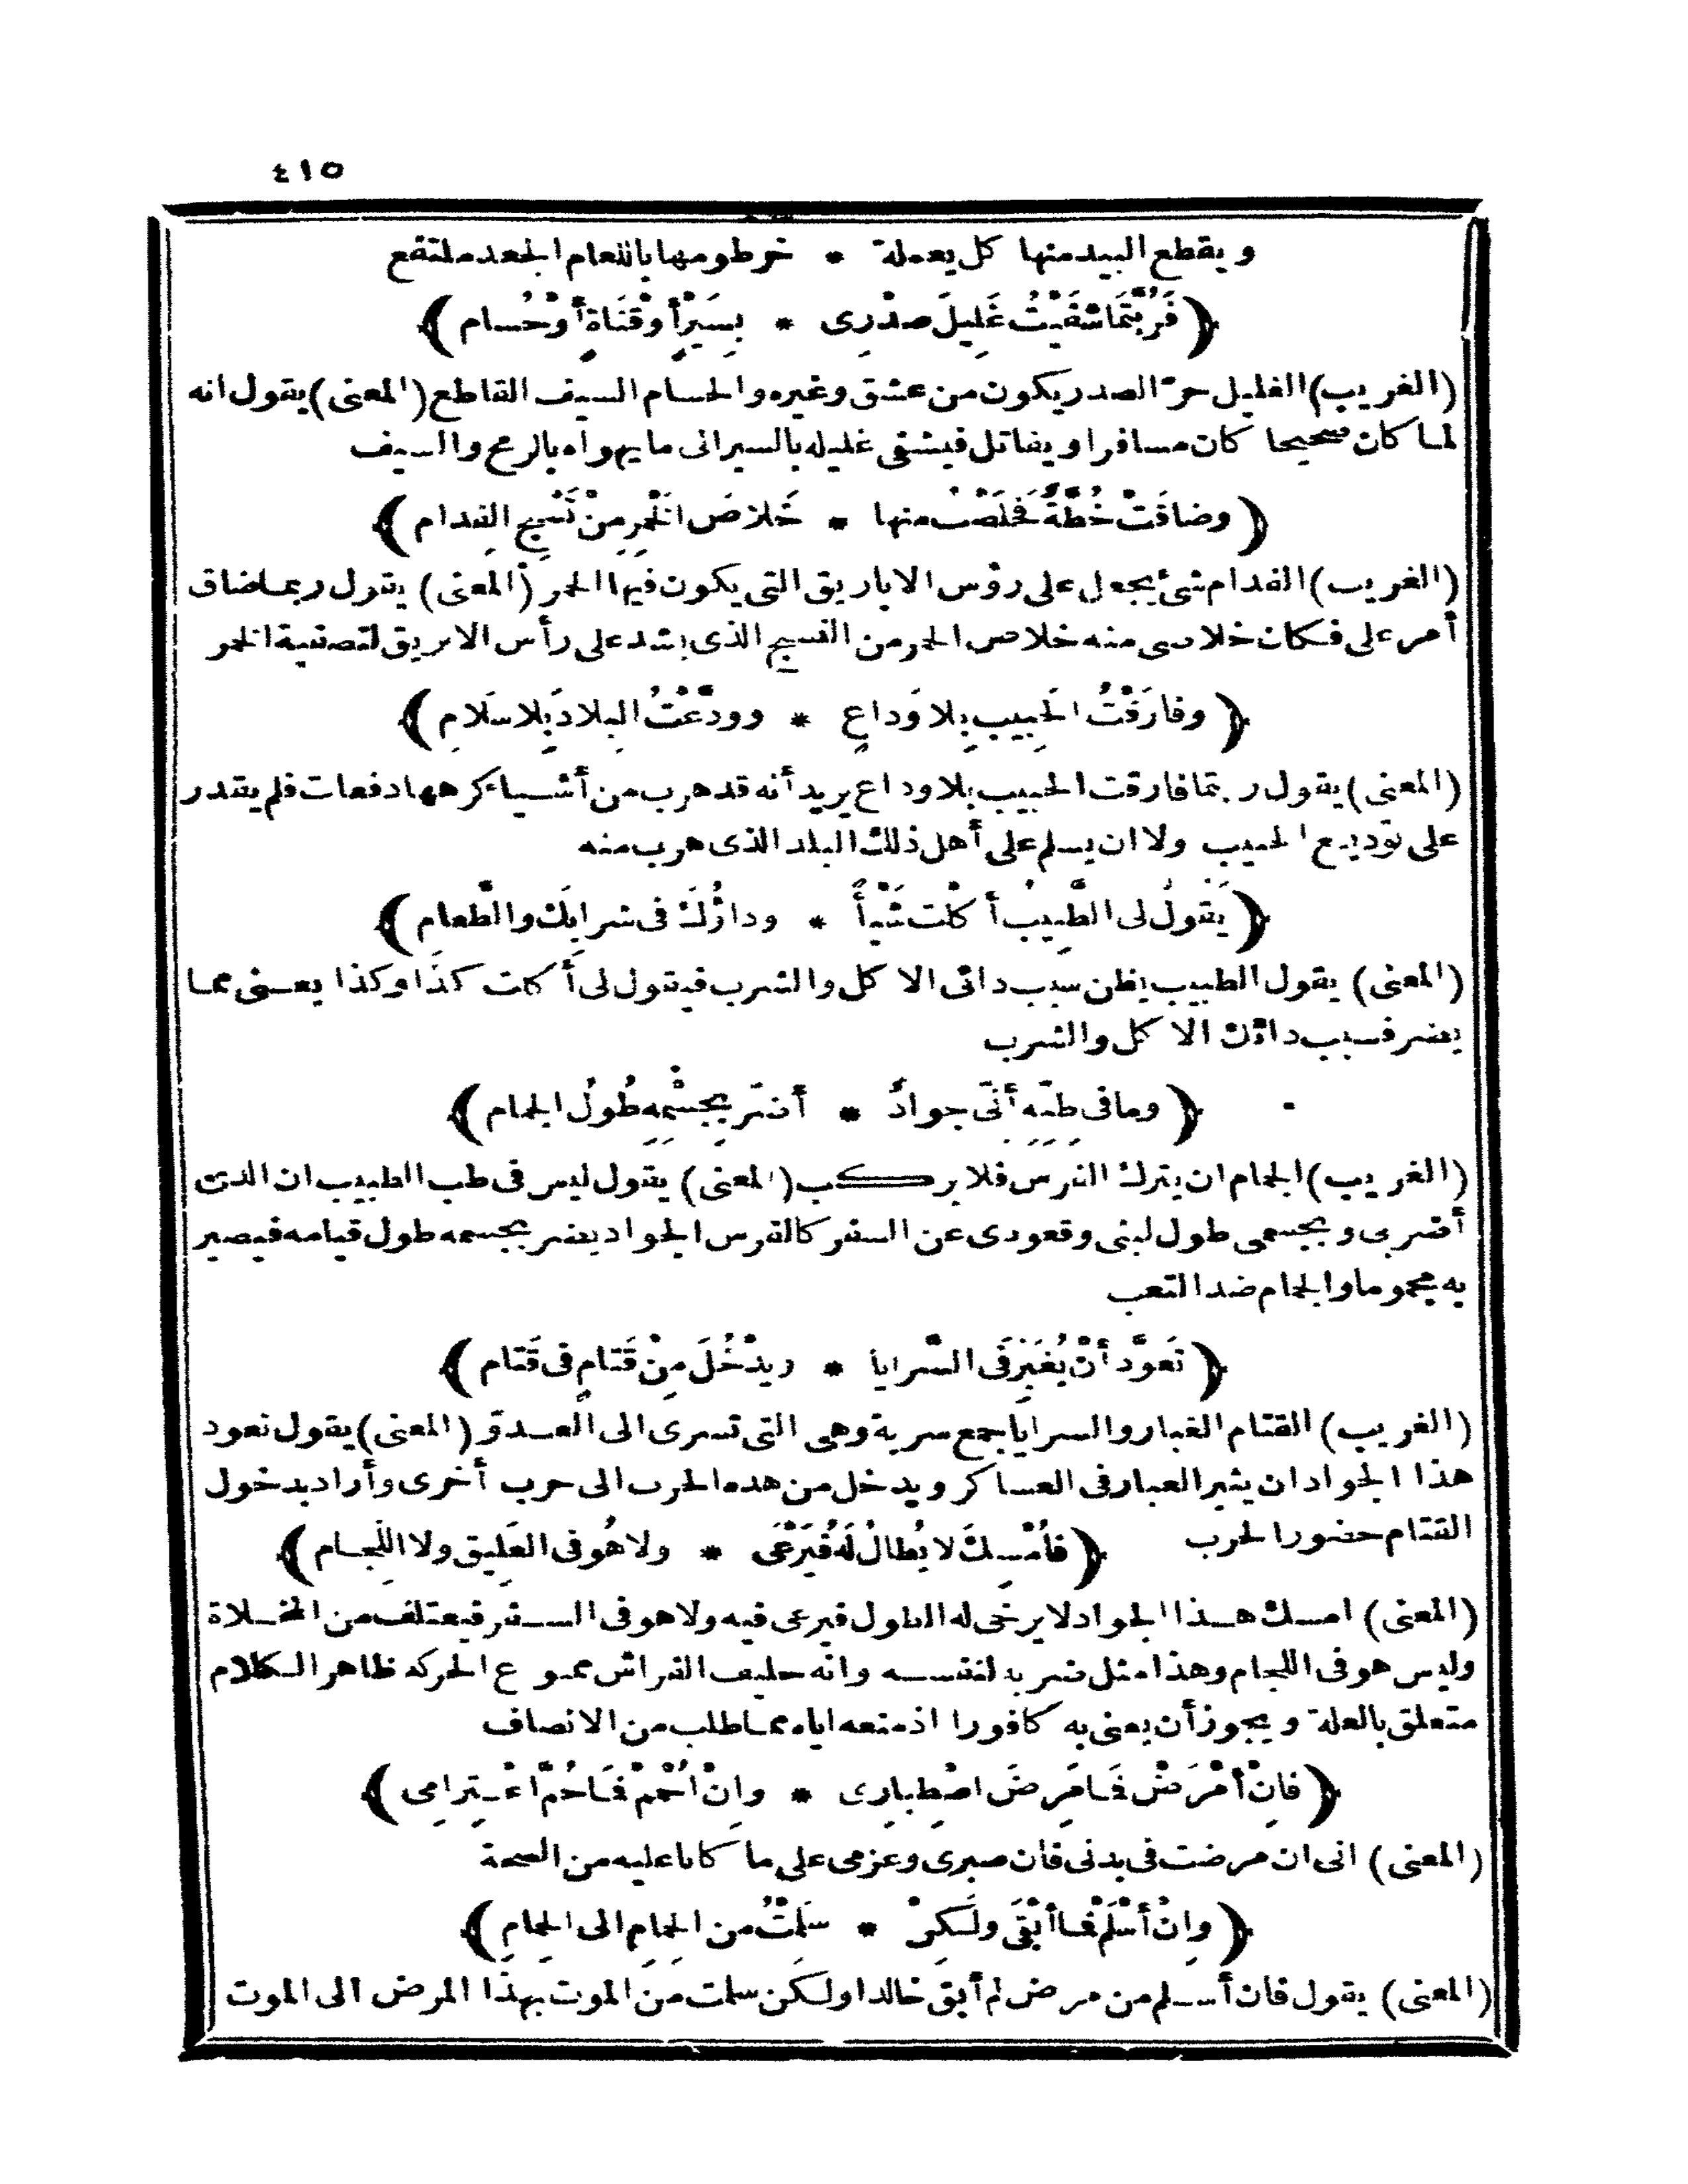 ٤١٥
ويقطع البيد منها كل يعملة * خرطومها باللغام الجعد ملتفع
(فَرُبَّتَمَا شَفَيْتُ غَلِيلَ صَدْرِى * بِسَيْرٍ أَوْ قَنَاةٍ أَوْ حُسام)
(الغريب) الغليل حرّ الصدر يكون من عشق وغيره والحسام السيف القاطع (المعنى) يقول انه
لما كان صحيحا كان مسافرا ويقاتل فيشفى غليله بالسير الى ما يهواه بالرمح والسيف
(وضاقَتْ خُطَّةٌ فَخَلَصْتُ منها * خَلاصَ الخَمْرِ مِنْ نَسْجِ الفِدام)
(الغريب) الفدام شئ يجعل على رؤس الاباريق التى يكون فيها الخمر (المعنى) يقول ربما ضاق
أمر على فكان خلاصى منه خلاص الخمر من النسج الذى يشد على رأس الابريق لتصفية الخمر
(وفارَقْتُ الحَبِيب بِلا وَداعٍ * وودَّعْتُ البِلادَ بِلا سَلامِ)
(المعنى) يقول ربتما فارقت الحبيب بلا وداع يريد أنه قد هرب من أشياء كرهها دفعات فلم يقدر
على توديع الحبيب ولا ان يسلم على أهل ذلك البلد الذى هرب منه
(يَقولُ لى الطَّبِيبُ أكَلْتَ شَيْأً * وداؤُكَ فى شرابِكَ والطَّعام)
(المعنى) يقول الطبيب يظن سبب دائى الاكل والشرب فيقول لى أكلت كذا وكذا يعنى مما
يضر فسبب دائك الاكل والشرب
(وما فى طِبِّهِ أَنِّى جوادٌ * أضَرَّ بِجِسْمِهِ طُولُ الجِمام)
(الغريب) الجمام ان يترك الفرس فلا يركب (المعنى) يقول ليس فى طب الطبيب ان الذى
أضر بى وبجسمى طول لبثى وقعودى عن السفر كالفرس الجواد يضر بجسمه طول قيامه فيصير
به مجموما والجمام ضد التعب
(تَعوَّدَ أنْ يُغَبِّرَ فى السَّرايا * ويدْخُلَ مِنْ قَتَامٍ فى قَتَام)
(الغريب) القتام الغبار والسرايا جمع سرية وهى التى تسرى الى العدوّ (المعنى) يقول تعود
هذا الجواد ان يثير الغبار فى العساكر ويدخل من هذه الحرب الى حرب أخرى وأراد بدخول
القتام حضور الحرب (فأُمْسِكَ لا يُطالُ لَهُ فَيَرْعَى * ولا هُو فى العَلِيق ولا اللِّجام)
(المعنى) امسك هذا الجواد لا يرخى له الطول فيرعى فيه ولا هو فى السفر فيعتلف من المخلاة
وليس هو فى اللجام وهذا مثل ضربه لنفسه وانه حليف الفراش ممنوع الحركة ظاهر الكلام
متعلق بالعلة ويجوز أن يعنى به كافورا اذ منعه اياه مما طلب من الانصاف
(فاِنْ أَمْرَضْ فَما مَرِضَ اصْطِبارِى * واِنْ أُحْمَمْ فَما حُمَّ اعْتِزامِى)
(المعنى) انى ان مرضت فى بدنى فان صبرى وعزمى على ما كانا عليه من الصحة
(واِنْ أَسْلَمْ فما أَبْقَى ولَكِنْ * سَلِمْتُ من الحِمامِ الى الحِمامِ)
(المعنى) يقول فان أسلم من مرض لم أبق خالدا ولكن سلمت من الموت بهذا المرض الى الموت